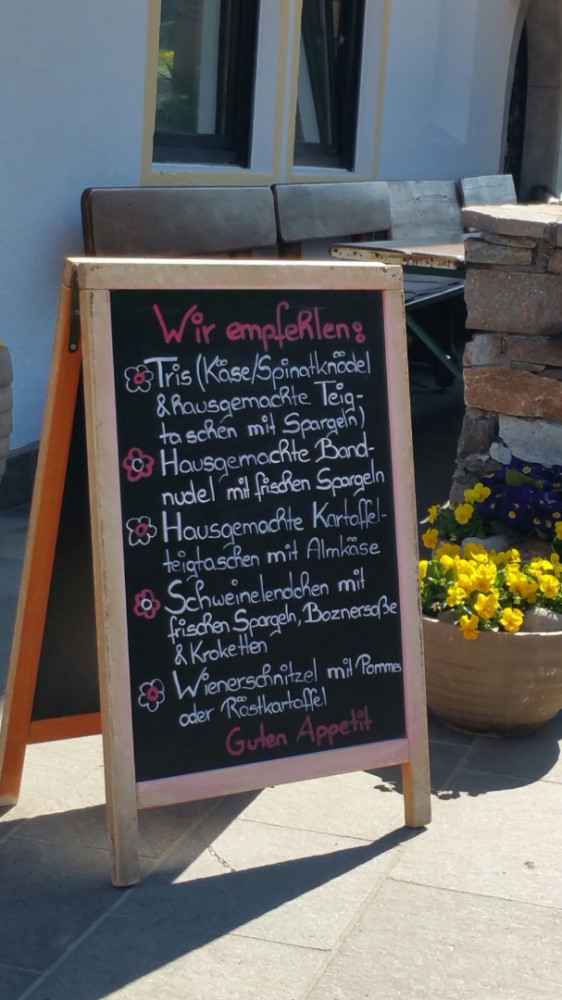 Wir empfehlen:
Tris (Käse/Spinatknödel
& hausgemachte Teig-
taschen mit Spargeln)
Hausgemachte Band-
nudel mit frischen Spargeln
Hausgemachte Kartoffel-
teigtaschen mit Almkäse
Schweinelendchen mit
frischen Spargeln, Boznersoße
& Kroketten
Wienerschnitzel mit Pommes
oder Röstkartoffel
Guten Appetit